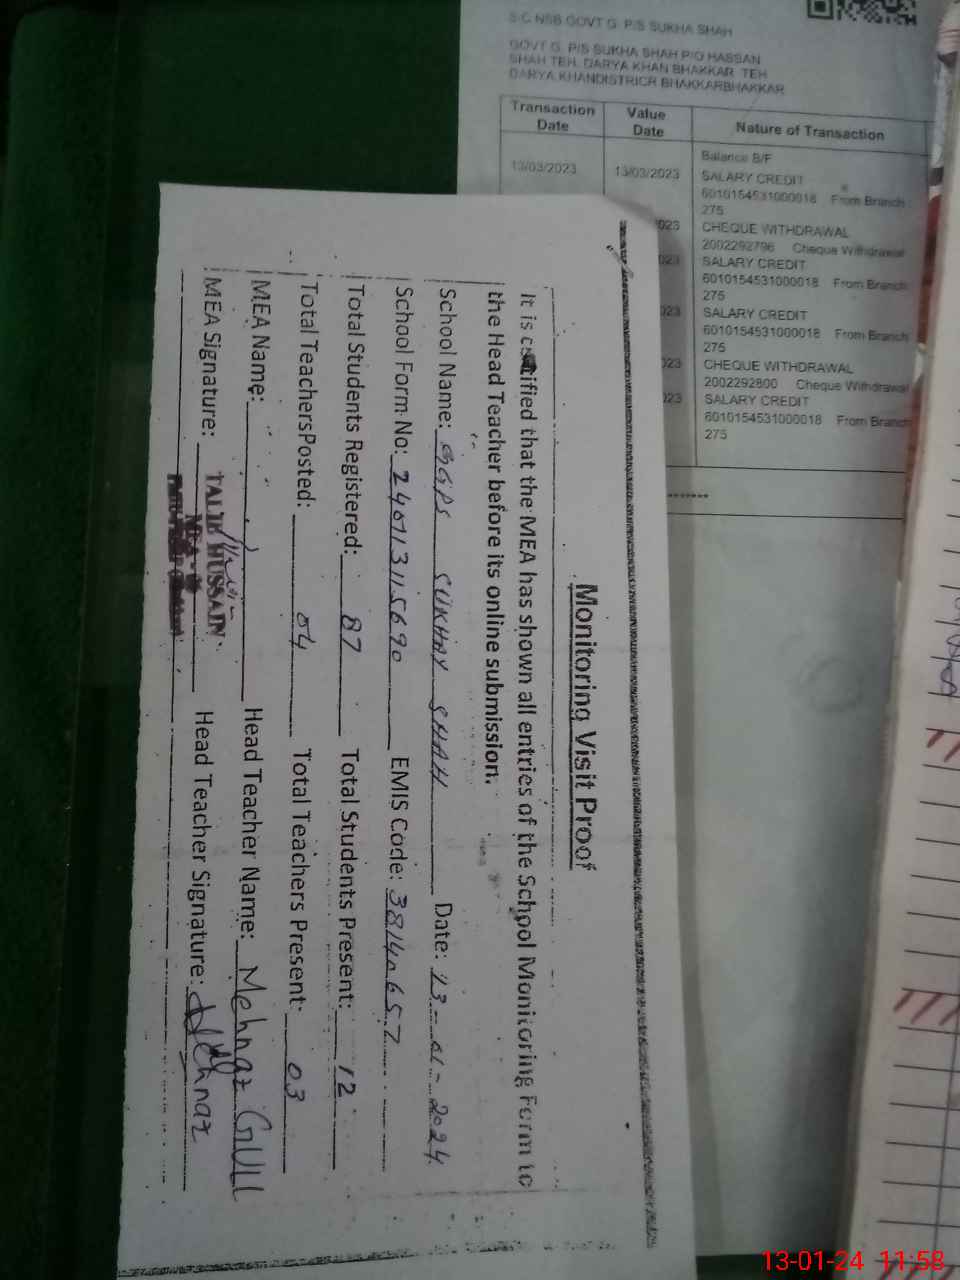 S.C NSB GOVT G. P/S SUKHA SHAH
GOVT G. P/S SUKHA SHAH P/O HASSAN
SHAH TEH. DARYA KHAN BHAKKAR TEH
DARYA KHANDISTRICR BHAKKARBHAKKAR
Transaction Date Value Date Nature of Transaction
Balance B/F
13/03/2023 13/03/2023 SALARY CREDIT
6010154531000018 From Branch
275
023 CHEQUE WITHDRAWAL
2002292796 Cheque Withdrawal
023 SALARY CREDIT
6010154531000018 From Branch
275
023 SALARY CREDIT
6010154531000018 From Branch
275
023 CHEQUE WITHDRAWAL
2002292800 Cheque Withdrawal
023 SALARY CREDIT
6010154531000018 From Branch
275
Monitoring Visit Proof
It is certified that the MEA has shown all entries of the School Monitoring Form to
the Head Teacher before its online submission.
School Name: GGPS SUKHAY SHAH Date: 13-01-2024
School Form No: 24013115690 EMIS Code: 38140657
Total Students Registered: 87 Total Students Present: 12
Total TeachersPosted: 04 Total Teachers Present: 03
MEA Name: Head Teacher Name: Mehnaz GULL
MEA Signature: TALIB HUSSAIN Head Teacher Signature: Mehnaz
13-01-24 11:58